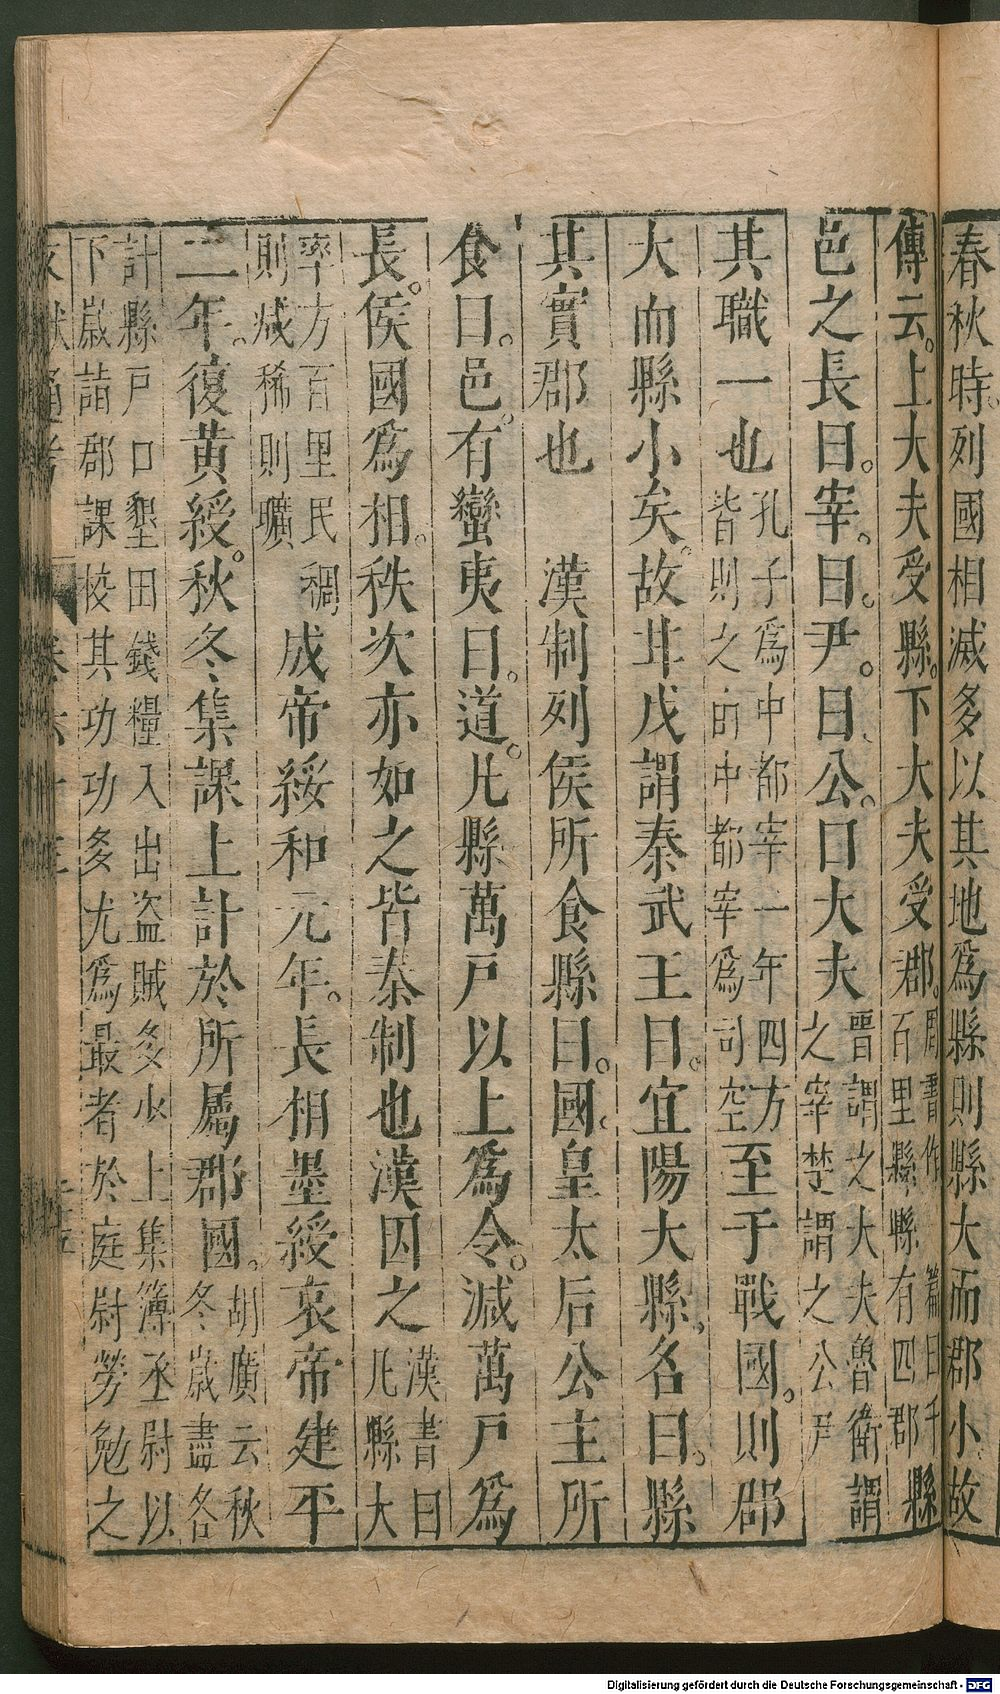 春秋時。列國相滅多以其地爲縣則縣大而郡小故
傳云。上大夫受縣。下大夫受郡。周書作篇曰千縣
百里縣縣有四郡
邑之長曰。宰。曰。尹。曰。公。口大夫晉謂之大夫魯衛謂
之宰楚謂之公尹
其職一也孔子爲中都宰一年四方
皆則之由中都宰爲司空至于戰國。則郡
大而縣小矣。故甘戊謂秦武王曰。宜陽大縣。名曰。縣
其實郡也　漢制列侯所食縣曰。國。皇太后公主所
食曰。邑。有蠻夷曰。道。凡縣萬戸以上爲令。減萬戸爲
長。侯國爲相。秩次亦如之皆秦制也漢因之漢書曰
凡縣大
率方百里民稠
則減稀則曠成帝綏和元年。長相墨綬哀帝建平
二年。復黃綬。秋冬集課上計於所屬郡國。胡廣云秋
冬歲盡各
計縣戸口墾田錢糧入出盜賊多少上集簿丞尉以
下歲詣郡課校其功功多尤爲最者於庭尉勞勉之
Digitalisierung gefördert durch die Deutsche Forschungsgemeinschaft - DFG